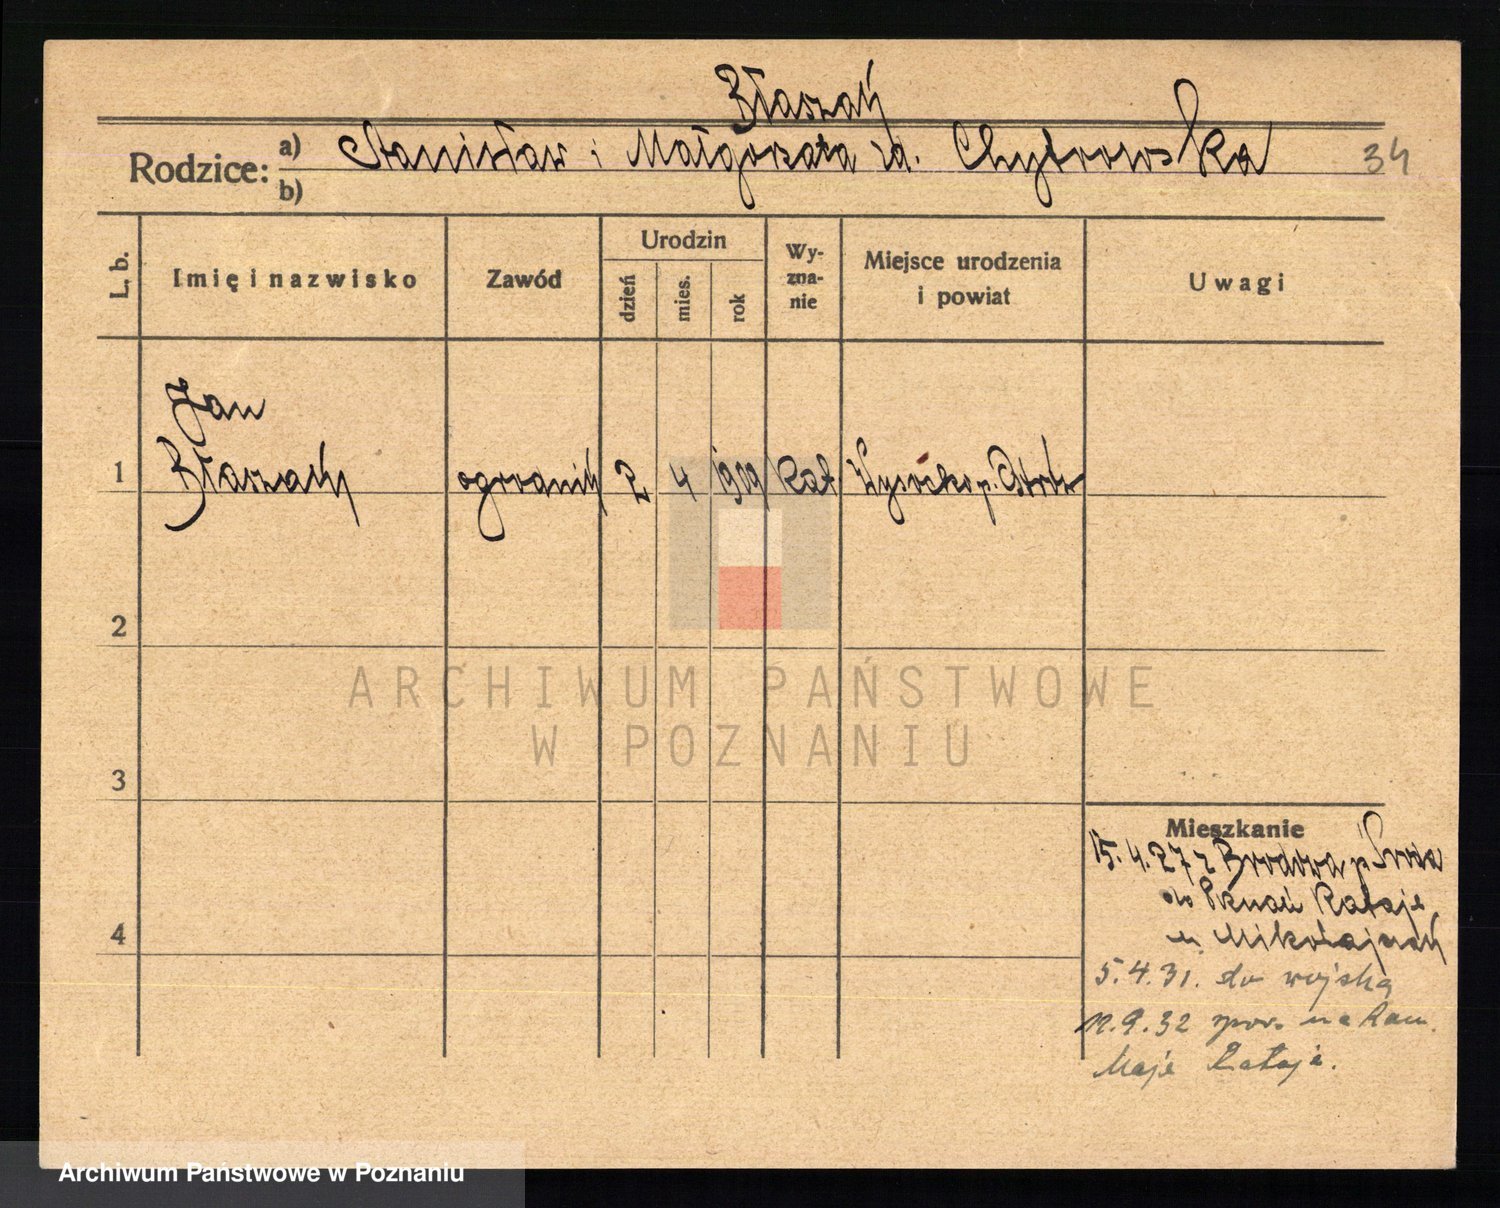 Błaszak
Rodzice: a) Stanisław i Małgorzata zd. Chybrowska 34
b)
L. b. Imię i nazwisko Zawód Urodzin dzień mies. rok Wy-zna-nie Miejsce urodzenia i powiat Uwagi
Jan
1 Błaszak ogrodnik 2 4 1909 kat Wysocko p. Ostrów
2
ARCHIWUM PAŃSTWOWE
W POZNANIU
3
Mieszkanie
15.4.27 z Brodowa p. Środa
do Poznań Rataje
4
u Mikołajczak
5.4.31. do wojska
12.9.32 z pow. na
Maje Rataje.
Archiwum Państwowe w Poznaniu